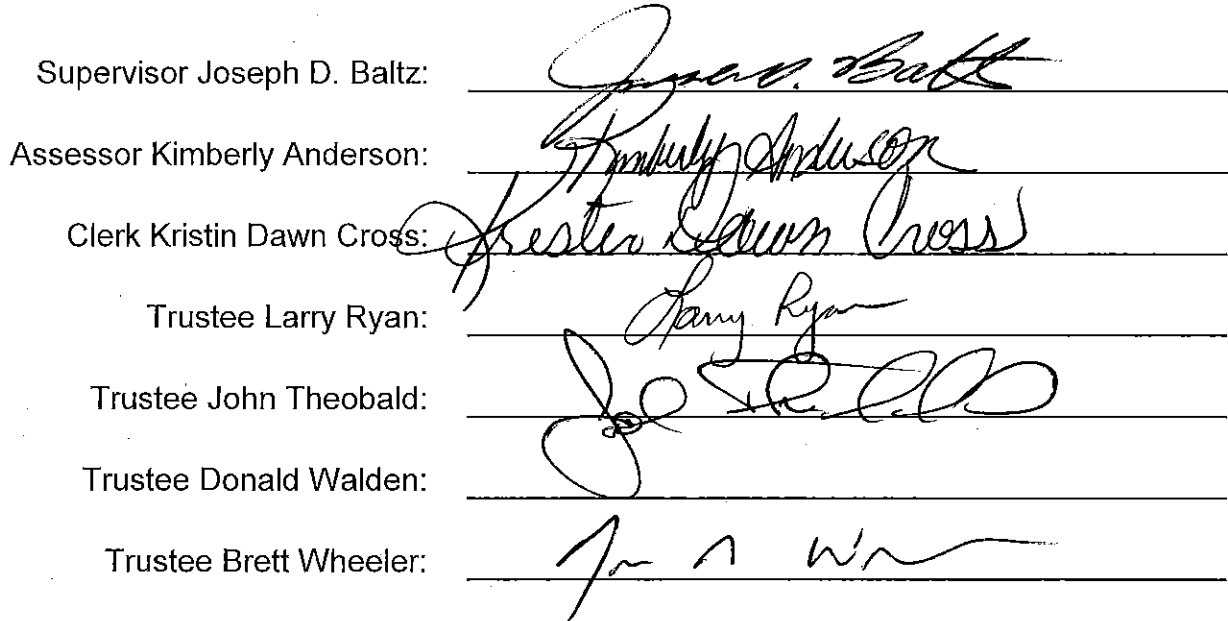 Supervisor Joseph D. Baltz: Joseph D. Baltz
Assessor Kimberly Anderson: Kimberly Anderson
Clerk Kristin Dawn Cross: Kristin Dawn Cross
Trustee Larry Ryan: Larry Ryan
Trustee John Theobald:
Trustee Donald Walden:
Trustee Brett Wheeler: